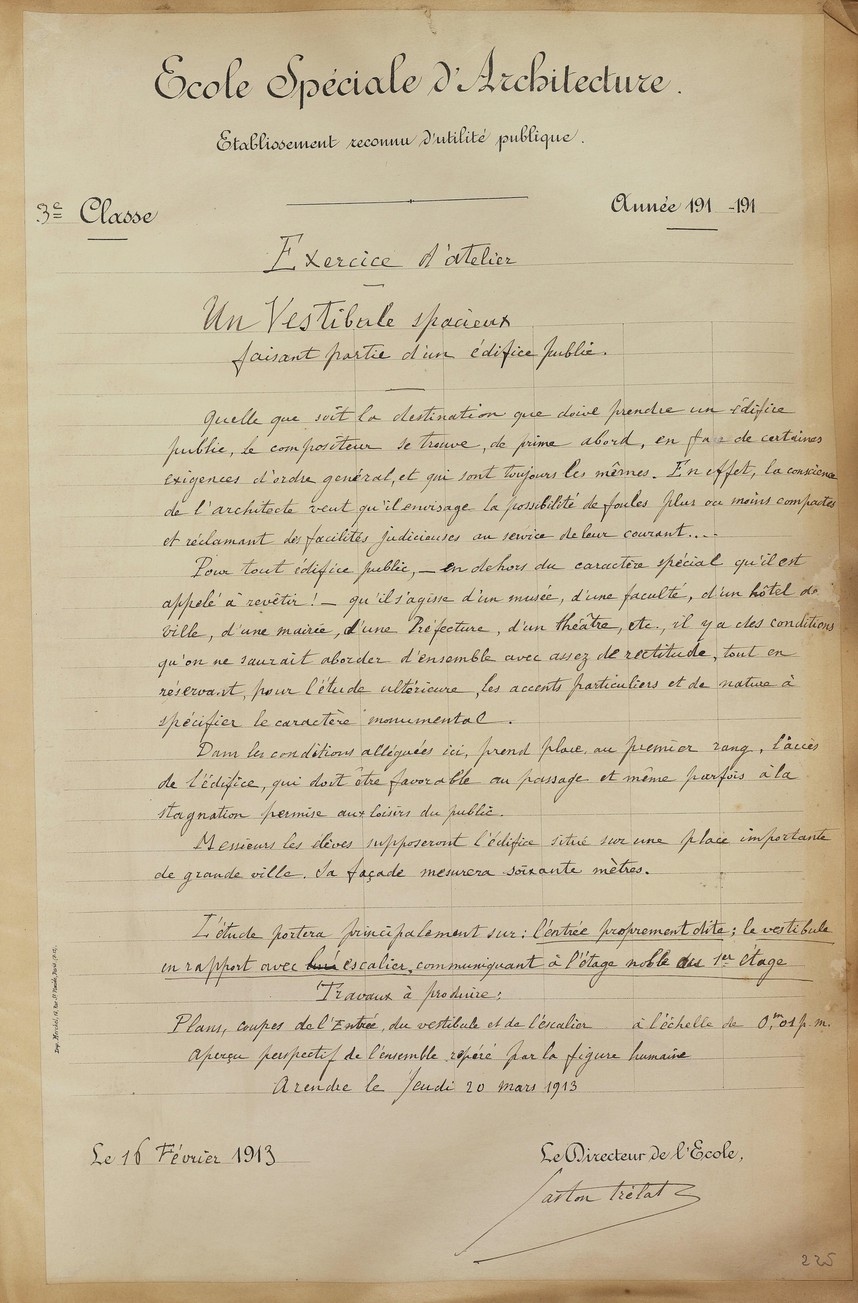 Ecole Spéciale d'Architecture.
Etablissement reconnu d'utilité publique.
3e Classe
Année 191 -191
Exercice d'atelier
Un Vestibule spacieux
faisant partie d'un édifice public.
Quelle que soit la destination que doive prendre un édifice
public, le compositeur se trouve, de prime abord, en face de certaines
exigences d'ordre général, et qui sont toujours les mêmes. En effet, la conscience
de l'architecte veut qu'il envisage la possibilité de foules plus ou moins compactes
et réclamant des facilités judicieuses au service de leur courant....
Pour tout édifice public, — en dehors du caractère spécial qu'il est
appelé à revêtir! — qu'il s'agisse d'un musée, d'une faculté, d'un hôtel de
ville, d'une mairie, d'une Préfecture, d'un théâtre, etc., il y a des conditions
qu'on ne saurait aborder d'ensemble avec assez de rectitude, tout en
réservant, pour l'étude ultérieure, les accents particuliers et de nature à
spécifier le caractère monumental.
Dans les conditions alléguées ici, prend place, au premier rang, l'accès
de l'édifice, qui doit être favorable au passage et même parfois à la
stagnation permise aux loisirs du public.
Messieurs les élèves supposeront l'édifice situé sur une place importante
de grande ville. Sa façade mesurera soixante mètres.
L'étude portera principalement sur: l'entrée proprement dite; le vestibule
en rapport avec escalier communiquant à l'étage noble au 1er étage
Travaux à produire:
Plans, coupes de l'Entrée, du vestibule et de l'escalier à l'échelle de 0,m01 p.m.
aperçu perspectif de l'ensemble repéré par la figure humaine
A rendre le Jeudi 20 mars 1913
Le 16 Février 1913
Le Directeur de l'Ecole,
Gaston Trélat
225